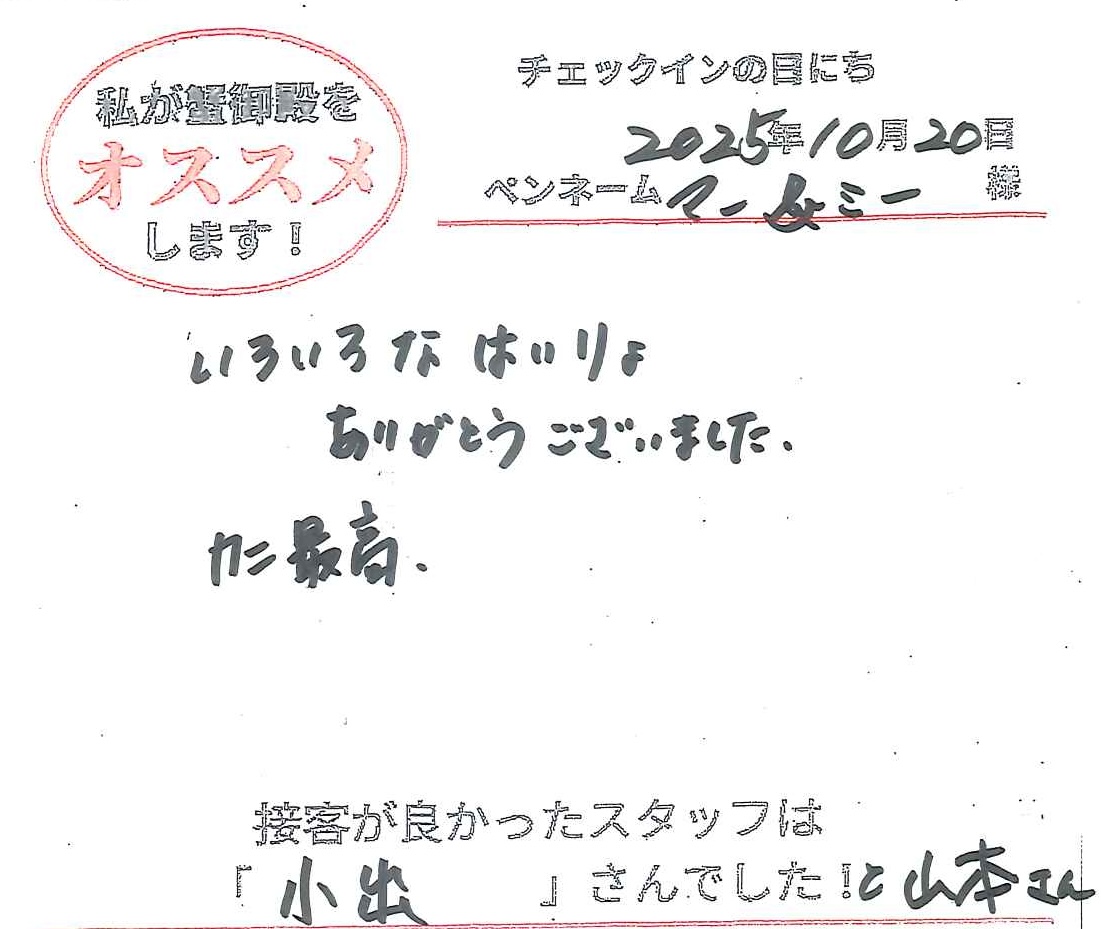 私が蟹御殿を
オススメ
します！
チェックインの日にち
2025年10月20日
ペンネーム マー&ミー 様
いろいろな はいりょ
ありがとうございました.
カニ最高.
接客が良かったスタッフは
「小出」さんでした！と山本さん